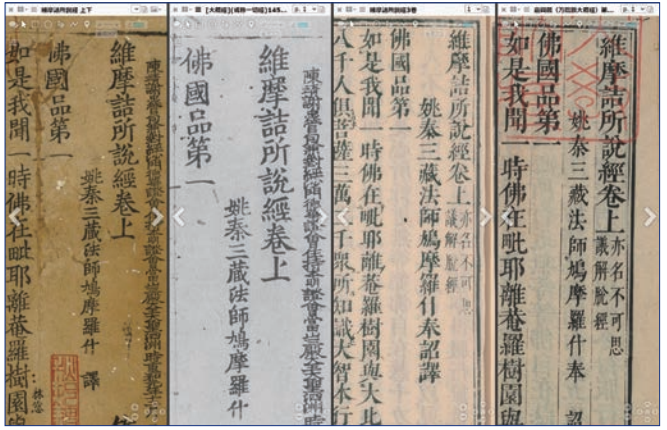 維摩詰所說經 上下
維摩詰所說經卷上
姚秦三藏法師鳩摩羅什 譯
佛國品第一
如是我聞一時佛在毗耶離菴羅樹園
[大蔵経](或称一切経)145...
p. 1
維摩詰所說經卷上
姚秦三藏法師鳩摩羅什
佛國品第一
維摩詰所説経3巻
維摩詰所說經卷上 亦名不可思
議解脫經
姚秦三藏法師鳩摩羅什奉詔譯
佛國品第一
如是我聞一時佛在毗耶離菴羅樹園與大比
八千人俱菩薩三萬二千衆所知識大智本行
p. 1
維摩詰所說經卷上 亦名不可思
議解脫經
姚秦三藏法師鳩摩羅什奉 詔
佛國品第一
如是我聞一時佛在毗耶離菴羅樹園與